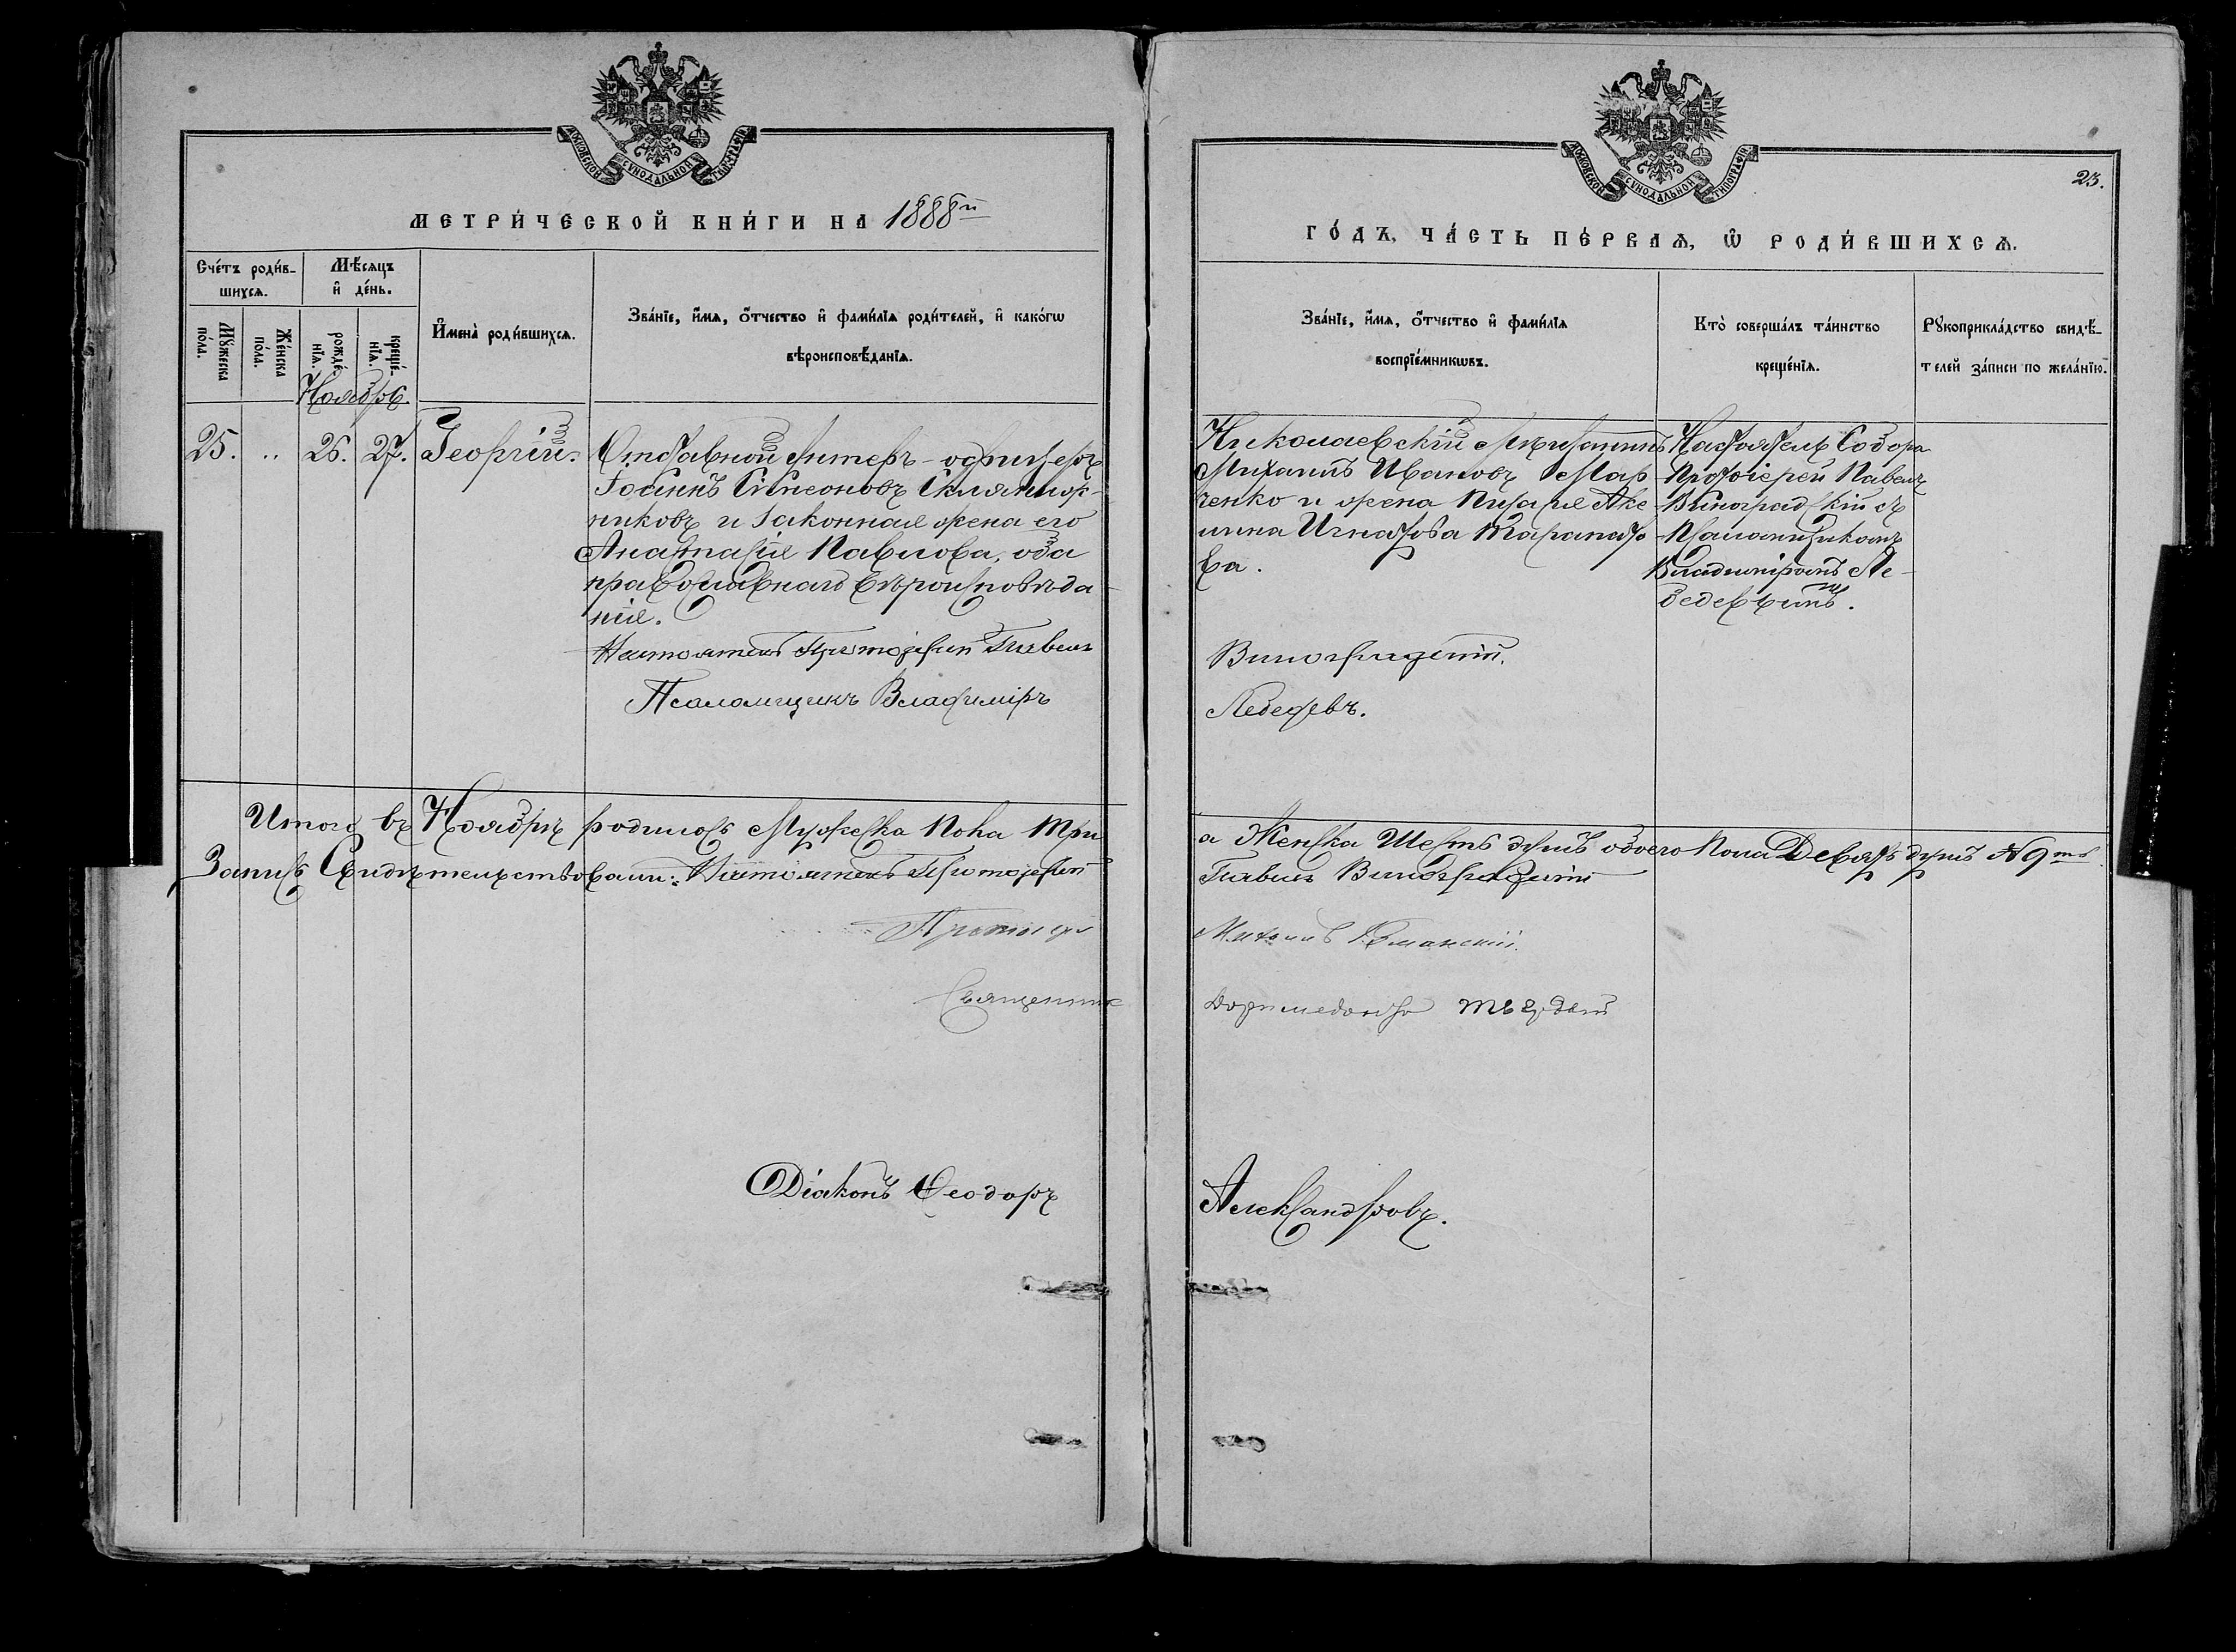 МОСКОВСКОЙ СУНОДАЛЬНОЙ ТИПОГРАФІИ
МЕТРИ́ЧЕСКОЙ КНИ́ГИ НА 1888й
Сче́тъ роди́в-
шихсѧ.
Мѣ́сѧцъ
и҆ де́нь.
Мꙋ́жеска
по́ла.
Же́нска
по́ла.
рожде́-
нїѧ.
креще́-
нїѧ.
И҆мена̀ роди́вшихсѧ.
Зва́нїе, и҆́мѧ, ѻ҆́тчество и҆ фами́лїѧ роди́телей, и҆ како́гѡ
вѣроисповѣ́данїѧ.
Ноябрь.
25. „ 26. 27. Георгій.
Отставной унтеръ-офицеръ
Іоаннъ Симеоновъ Склянчор-
никовъ и законная жена его
Анастасія Павлова, оба
православнаго вѣроисповѣда-
нія.
Настоятель Протоіерей Павелъ
Псаломщикъ Владиміръ
Итого въ Ноябрѣ родилось Мужеска пола три
Запись Свидѣтельствовали: Настоятель Протоіерей
Священникъ
Діаконъ Ѳеодоръ
МОСКОВСКОЙ СУНОДАЛЬНОЙ ТИПОГРАФІИ
23.
ГО́ДЪ, ЧА́СТЬ ПЕ́РВАѦ, Ѡ҆ РОДИ́ВШИХСѦ.
Зва́нїе, и҆́мѧ, ѻ҆́тчество и҆ фами́лїѧ
воспрїе́мникѡвъ.
Кто̀ соверша́лъ та́инство
креще́нїѧ.
Рꙋкоприкла́дство свидѣ́-
телей за́писи по жела́нїю.
Николаевскій мѣщанинъ
Михаилъ Ивановъ Мар-
ченко и жена писаря Аке-
лина Игнатова Таранато-
ва.
Настоятель Собора
Протоіерей Павелъ
Виноградскій съ
Псаломщикомъ
Владиміромъ Ле-
бедевымъ.
Виноградскій.
Лебедевъ.
а Женска Шесть душъ обоего пола Девять душъ № 9ть
Павелъ Виноградскій
Михаилъ
Доримедонтъ Твердый
Александровъ.